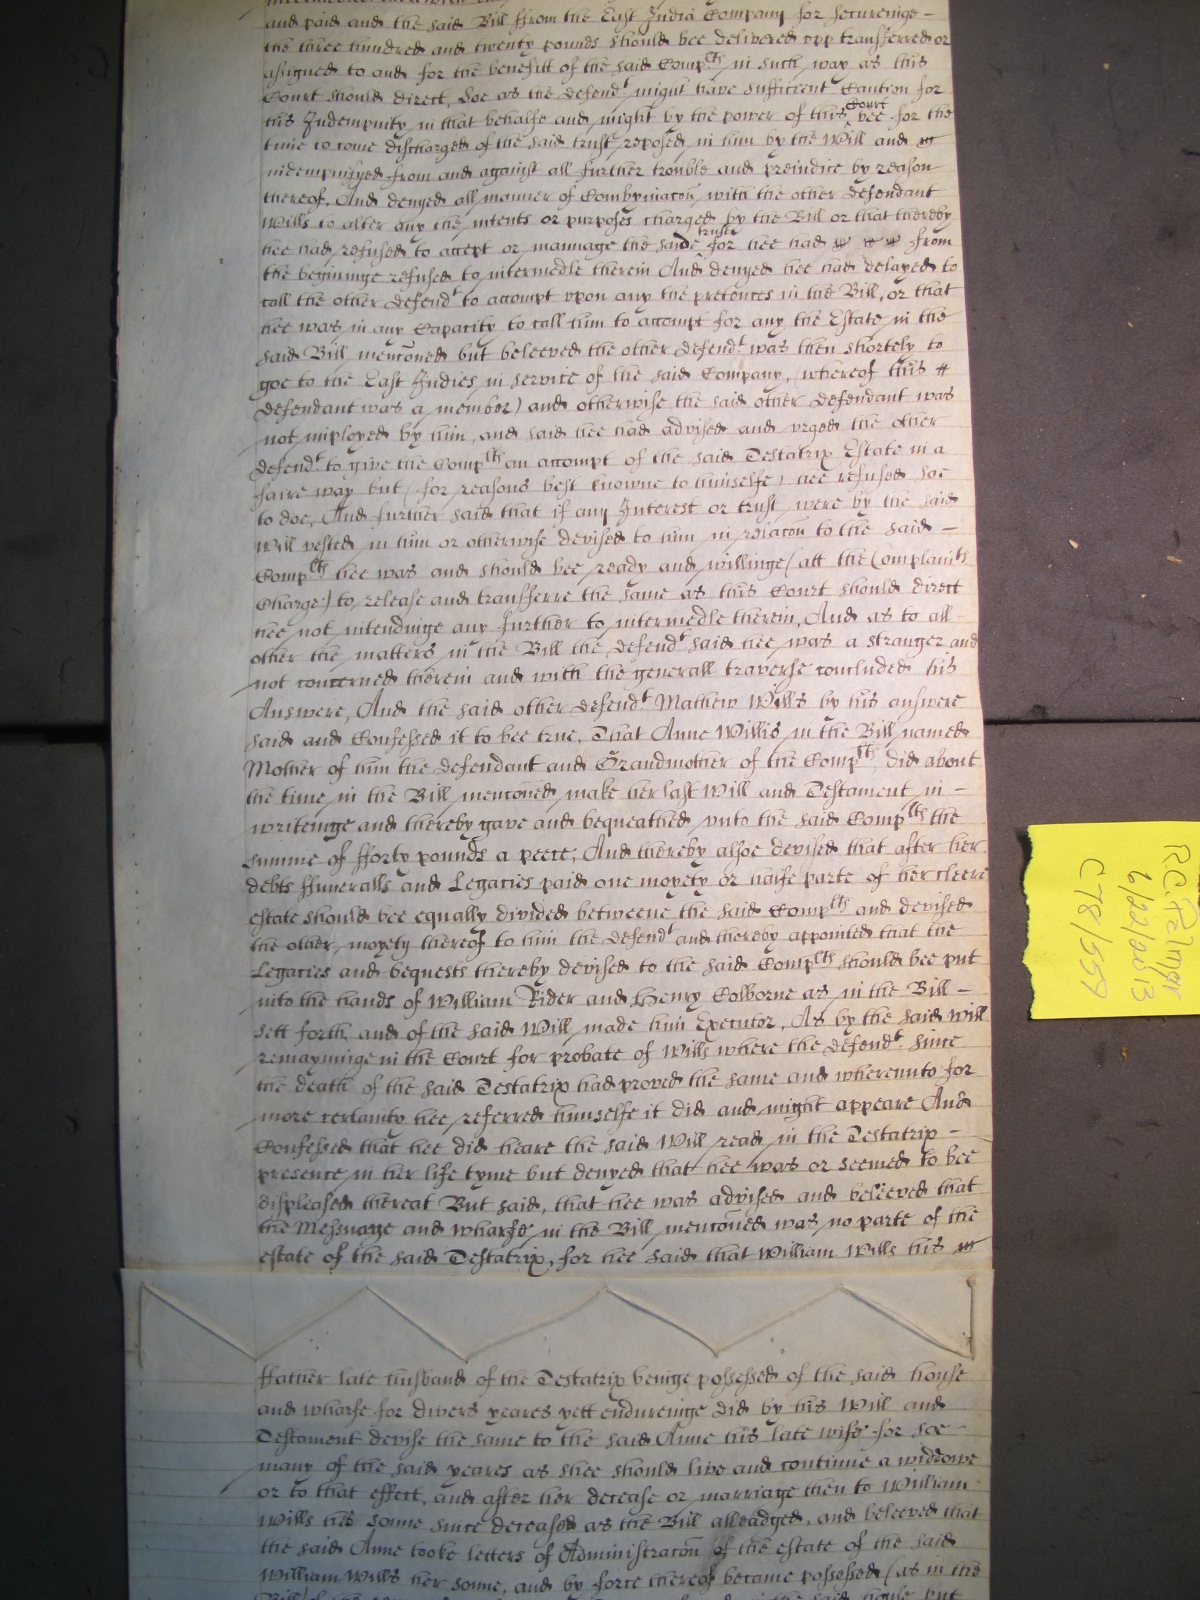 and paid and the said Bill ffrom the East India Company for secureinge -
the three hundred and twenty pounds should bee delivered upp transferred or
assigned to and for the benefitt of the said Complts in such way as this
Court should direct, Soe as the defendt might have sufficient Caution for
his Indempnity in that behalfe and might by the power of this Court bee for the
time to come discharged of the said trust reposed in him by the Will and
indempnifyed from and against all further trouble and preiudice by reason
thereof, And denyed all manner of Combynacon with the other defendant
Wills to alter any the intents or purposes charged by the Bill or that thereby
hee had refused to accept or mannage the saide trust for hee had from
the begininge refused to intermedle therein And denyed hee had delayed to
call the other defendt to accompt upon any the pretences in the Bill, or that
hee was in any Capacity to call him to accompt for any the Estate in the
said Bill menconed but beleeved the other defendt was then shortely to
goe to the East Indies in service of the said Company, (whereof this
defendant was a member) and otherwise the said other defendant was
not imployed by him, and said hee had advised and urged the other
defendt to give the Complts an accompt of the said Testatrix Estate in a
faire way but (for reasons best knowne to himselfe) hee refused soe
to doe, And further said that if any Interest or trust were by the said
Will vested in him or otherwise devised to him in relacon to the said -
Complts hee was and should bee ready and willinge (att the Complaints
Charge) to release and transferre the same as this Court should direct
hee not intendinge any further to intermedle therein, And as to all
other the matters in the Bill the defendt said hee was a stranger and
not concerned therein and with the generall traverse concluded his
Answere, And the said other defendt Mathew Wills by his answere
said and Confessed it to bee true, That Anne Willis in the Bill named
Mother of him the defendant and Grandmother of the Complts, did about
the time in the Bill menconed make her last Will and Testament in -
writeinge and thereby gave and bequeathed unto the said Complts the
summe of fforty pounds a peece, And thereby alsoe devised that after her
debts ffuneralls and Legacies paid one moyety or halfe parte of her cleere
estate should bee equally divided betweene the said Complts and devised
the other moyety thereof to him the defendt and thereby appointed that the
Legacies and bequests thereby devised to the said Complts should bee put
into the hands of William Rider and Henry Colborne as in the Bill -
sett forth, and of the said Will made him Executor, As by the said Will
remayninge in the Court for probate of Wills where the defendt since
the death of the said Testatrix had proved the same and whereunto for
more certainty hee referred himselfe it did and might appeare And
Confessed that hee did heare the said Will read in the Testatrix -
presence in her life tyme but denyed that hee was or seemed to bee
displeased thereat But said, that hee was advised and beleeved that
the Messuage and wharfe in the Bill menconed was no parte of the
estate of the said Testatrix, for hee said that William Wills his
ffather late husband of the Testatrix beinge possessed of the said house
and wharfe for divers yeares yett endureinge did by his Will and
Testament devise the same to the said Anne his late wife for soe -
many of the said yeares as shee should live and continue a widdowe
or to that effect, and after her decease or marriage then to William
Wills his sonne since deceased as the Bill alleadged, and beleeved that
the said Anne tooke letters of Administracon of the estate of the said
William Wills her sonne, and by force thereof became possessed (as in the
R.C. Palmer
6/22/2013
C78/559